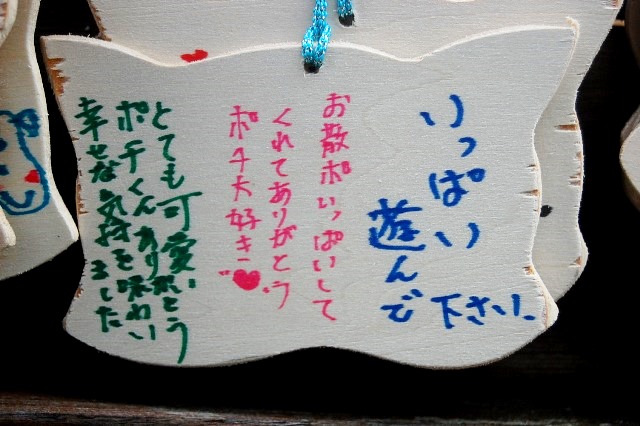 いっぱい
遊んで下さい。
お散ポいっぱいして
くれてありがとう。
ポチ大好き♥
とても可愛い
ポチくんありがとう
幸せな気持を味わい
ました